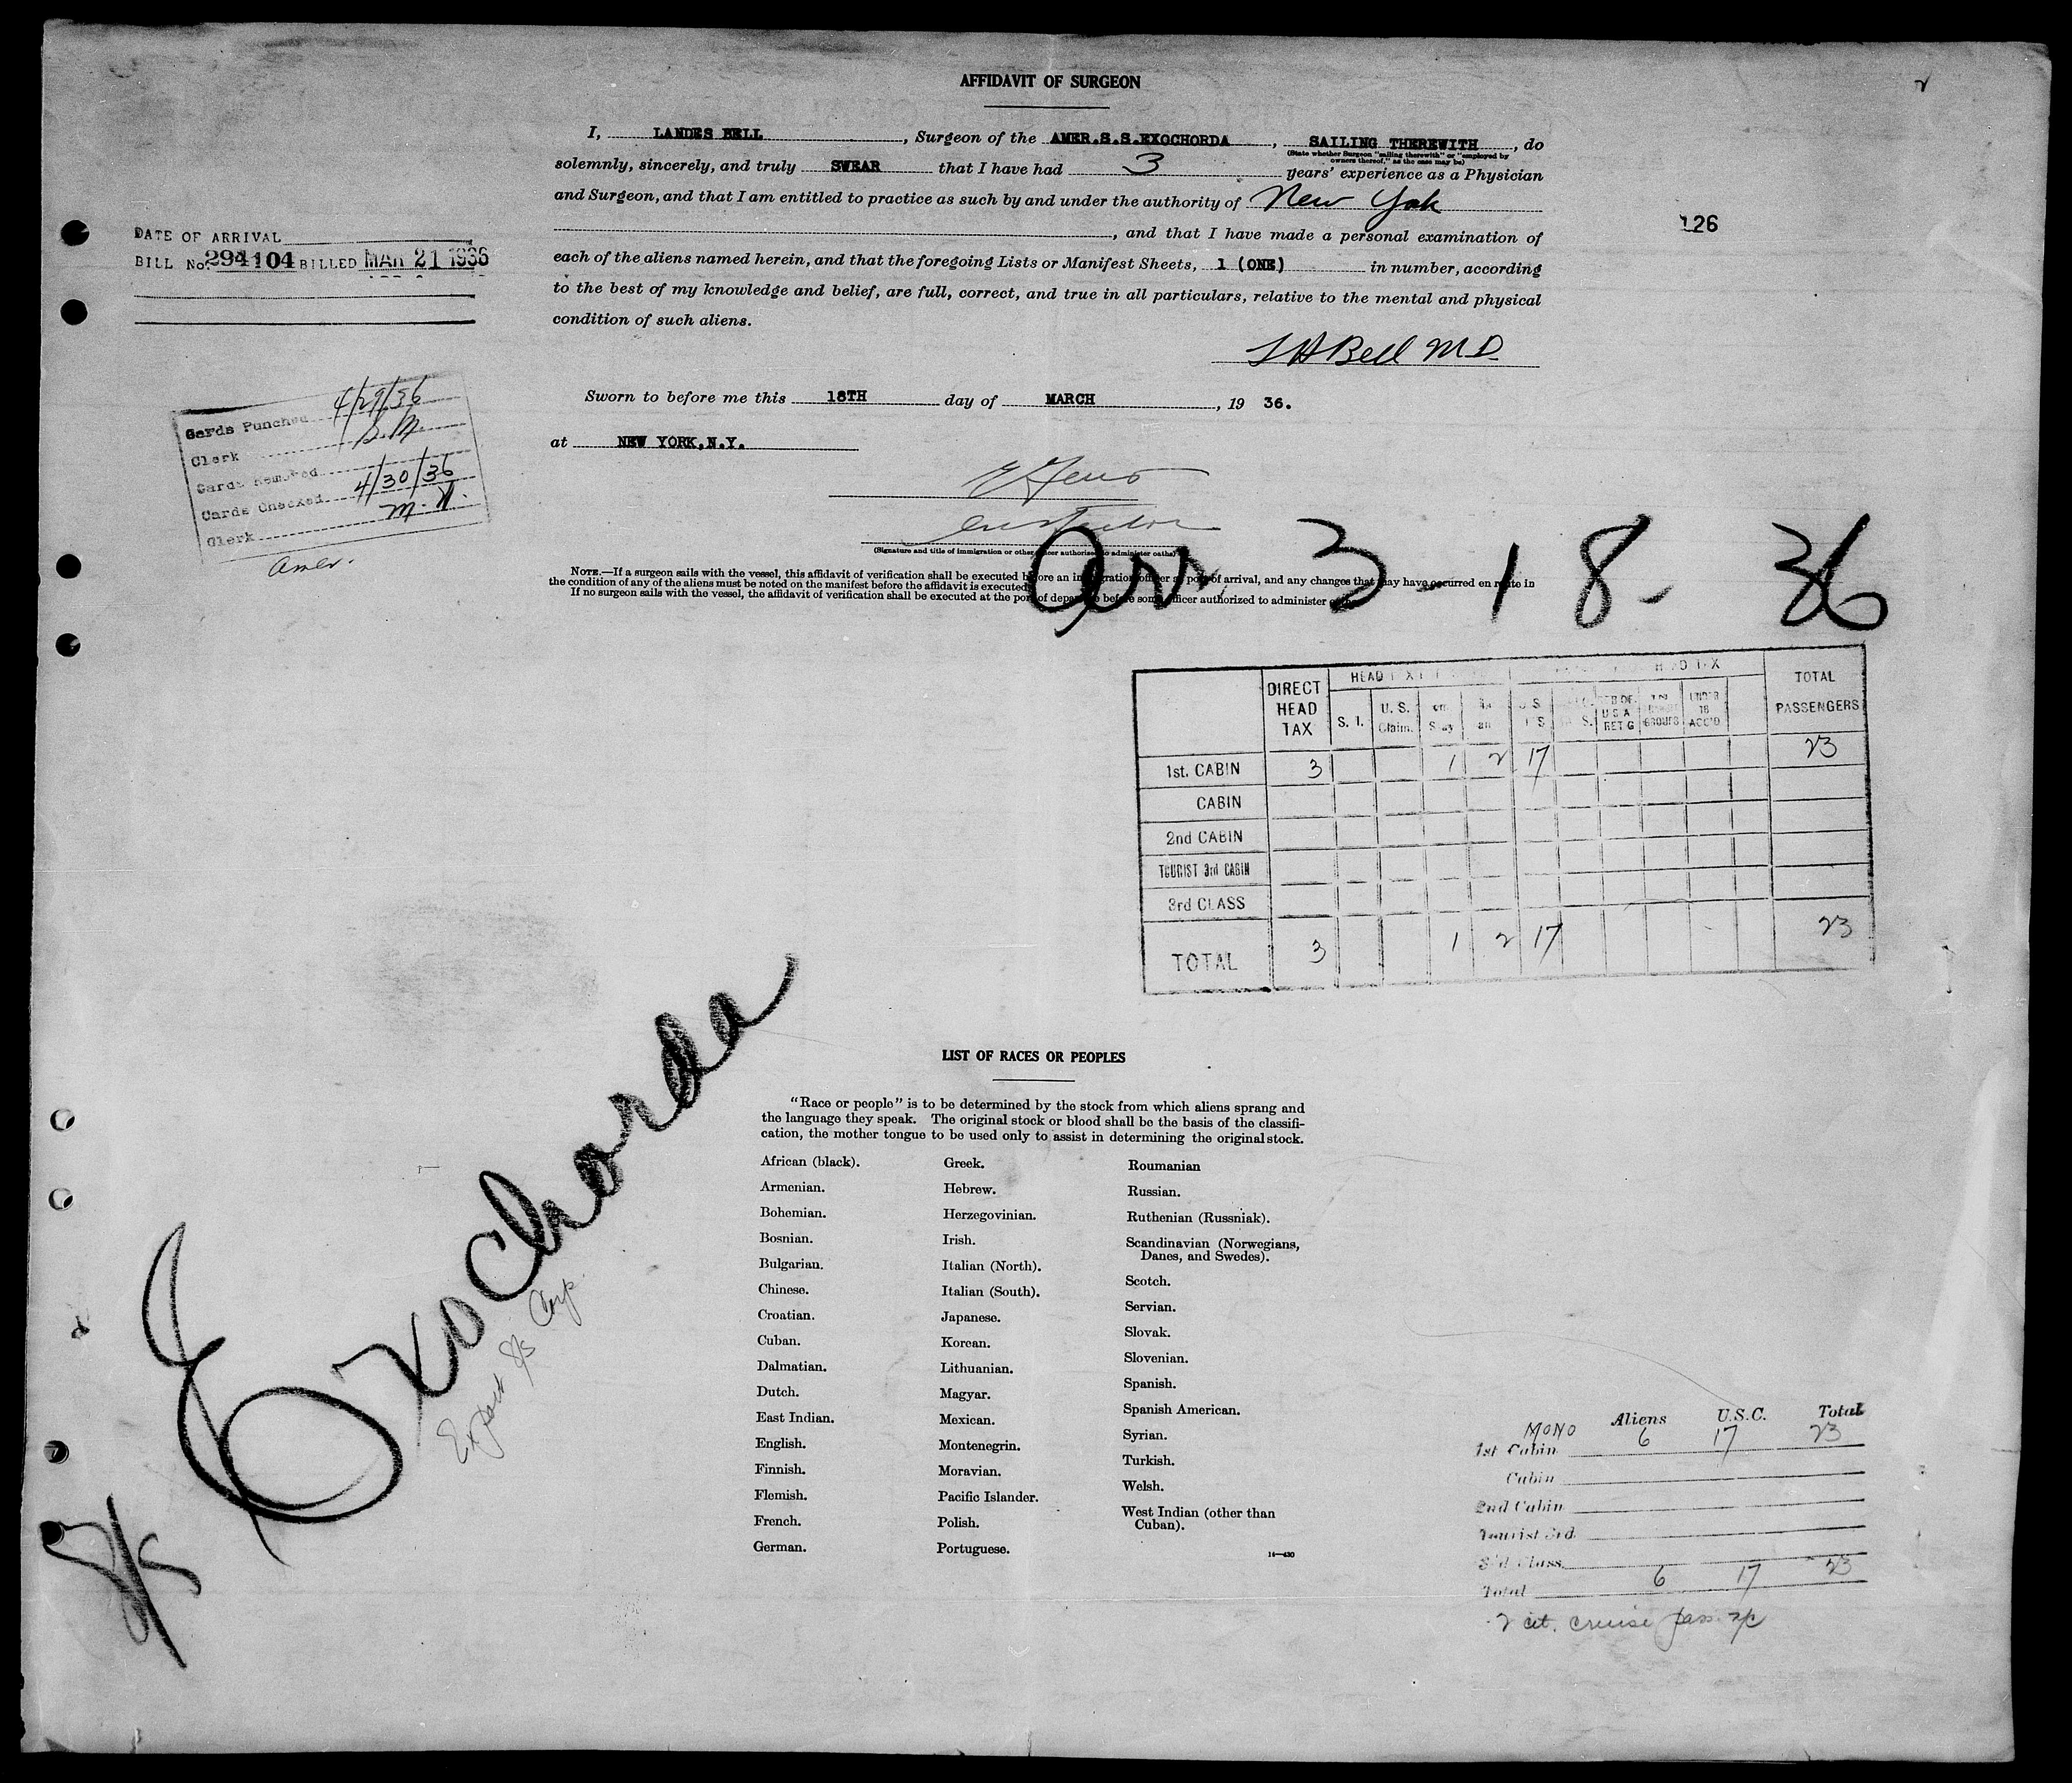 AFFIDAVIT OF SURGEON
2
I, LANDES BELL, Surgeon of the AMER.S.S.EXOCHORDA, SAILING THEREWITH, do
(State whether Surgeon "sailing therewith" or "employed by
owners thereof," as the case may be)
solemnly, sincerely, and truly SWEAR that I have had 3 years' experience as a Physician
and Surgeon, and that I am entitled to practice as such by and under the authority of New York
, and that I have made a personal examination of
each of the aliens named herein, and that the foregoing Lists or Manifest Sheets, 1 (ONE) in number, according
to the best of my knowledge and belief, are full, correct, and true in all particulars, relative to the mental and physical
condition of such aliens.
126
DATE OF ARRIVAL
BILL No. 294104 BILLED MAR 21 1936
L H Bell M D.
Sworn to before me this 18TH day of MARCH, 19 36.
at NEW YORK,N.Y.
Cards Punched 4/29/36
Clerk
Cards Removed
Cards Checked 4/30/36
Clerk
Amer.
(Signature and title of immigration or other officer authorized to administer oaths)
NOTE.—If a surgeon sails with the vessel, this affidavit of verification shall be executed before an immigration officer at port of arrival, and any changes that may have occurred en route in
the condition of any of the aliens must be noted on the manifest before the affidavit is executed.
If no surgeon sails with the vessel, the affidavit of verification shall be executed at the port of departure before some officer authorized to administer
Arr 3-18-36
DIRECT HEAD TAX
S. I.
U. S. Claim.
UNDER 16 ACC'D
TOTAL PASSENGERS
1st. CABIN 3 1 2 17 23
CABIN
2nd CABIN
TOURIST 3rd CABIN
3rd CLASS
TOTAL 3 1 2 17 23
S/S Exochorda
Export S/S Corp.
LIST OF RACES OR PEOPLES
"Race or people" is to be determined by the stock from which aliens sprang and
the language they speak. The original stock or blood shall be the basis of the classifi-
cation, the mother tongue to be used only to assist in determining the original stock.
African (black).
Armenian.
Bohemian.
Bosnian.
Bulgarian.
Chinese.
Croatian.
Cuban.
Dalmatian.
Dutch.
East Indian.
English.
Finnish.
Flemish.
French.
German.
Greek.
Hebrew.
Herzegovinian.
Irish.
Italian (North).
Italian (South).
Japanese.
Korean.
Lithuanian.
Magyar.
Mexican.
Montenegrin.
Moravian.
Pacific Islander.
Polish.
Portuguese.
Roumanian
Russian.
Ruthenian (Russniak).
Scandinavian (Norwegians,
Danes, and Swedes).
Scotch.
Servian.
Slovak.
Slovenian.
Spanish.
Spanish American.
Syrian.
Turkish.
Welsh.
West Indian (other than
Cuban).
14—430
Aliens U.S.C. Total
MONO
1st Cabin 6 17 23
Cabin
2nd Cabin
Tourist 3rd
3rd Class
Total 6 17 23
2 cit. cruise pass.